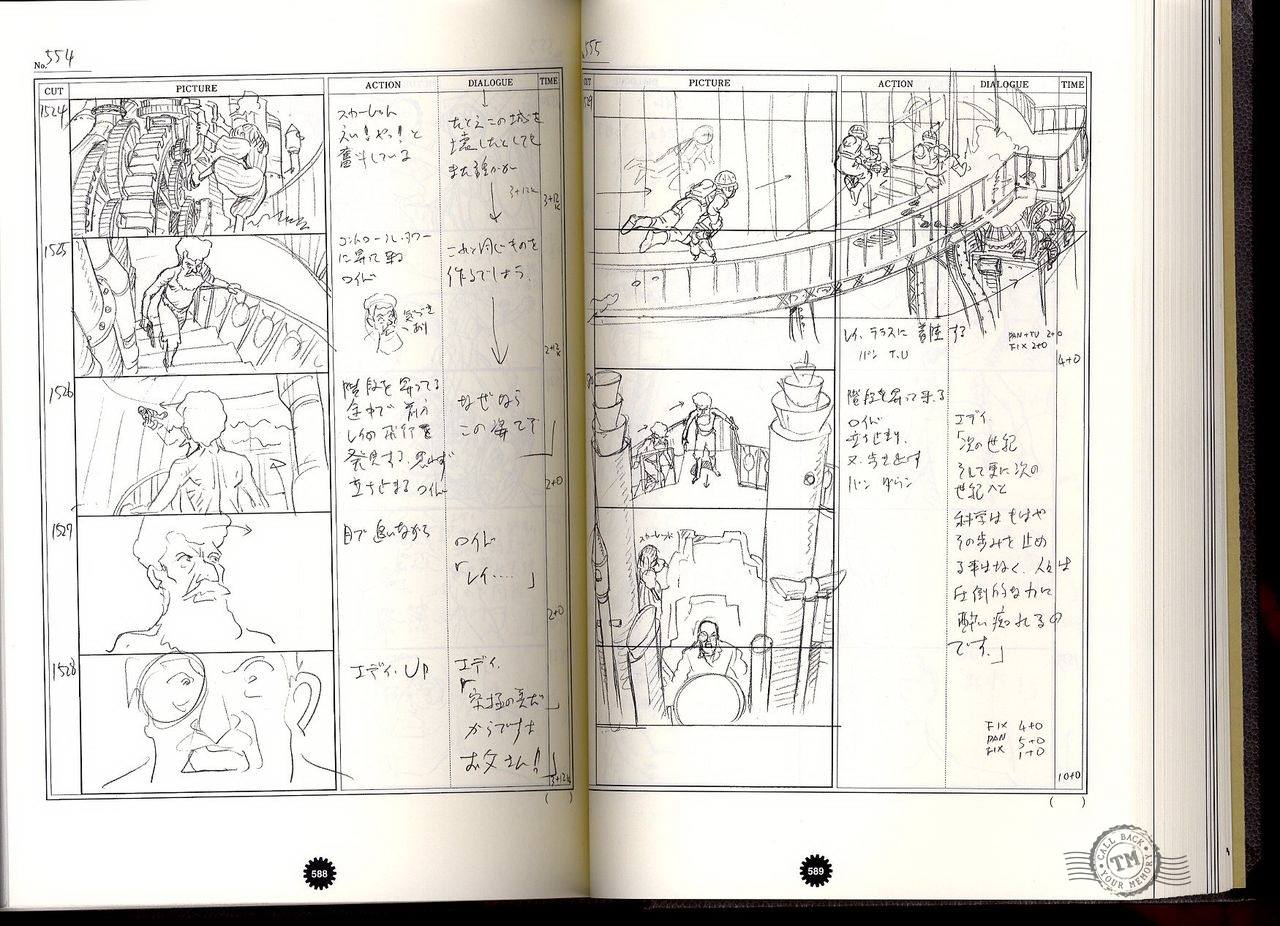 No. 554
CUT PICTURE ACTION DIALOGUE TIME
1524
スカーレット
えい！やっ！と
奮斗している
たとえこの城を
壊したとしても
また誰かが
3+12k
3+12
k
1525
コントロール・タワー
に昇って来る
ロイド
気づき
あり
これと同じものを
作るでしょう。
2+12
k
1526
階段を昇ってる
途中で
レイの飛行を
発見する、思わず
立ち止まるロイド
なぜなら
この姿こそ
2+0
1527
目で追いながら
ロイド
「レイ……」
2+0
1528
エディ. UP
エディ.
「究極の美だ
からですよ
お父さん!!」
3+12k
( )
588
555
CUT PICTURE ACTION DIALOGUE TIME
レイ、テラスに着陸する
パン T.U
PAN+TU 2+0
FIX 2+0
4+0
階段を昇って来る
ロイド
立ち止まり、
又、歩き出す
パン ダウン
スカーレット
エディ.
「次の世紀
そして更に次の
世紀へと
科学はもはや
その歩みを止め
る事はなく、人々は
圧倒的な力に
酔い痴れるの
です。」
FIX 4+0
PAN 5+0
FIX 1+0
10+0
( )
589
CALL BACK
TM
YOUR MEMORY